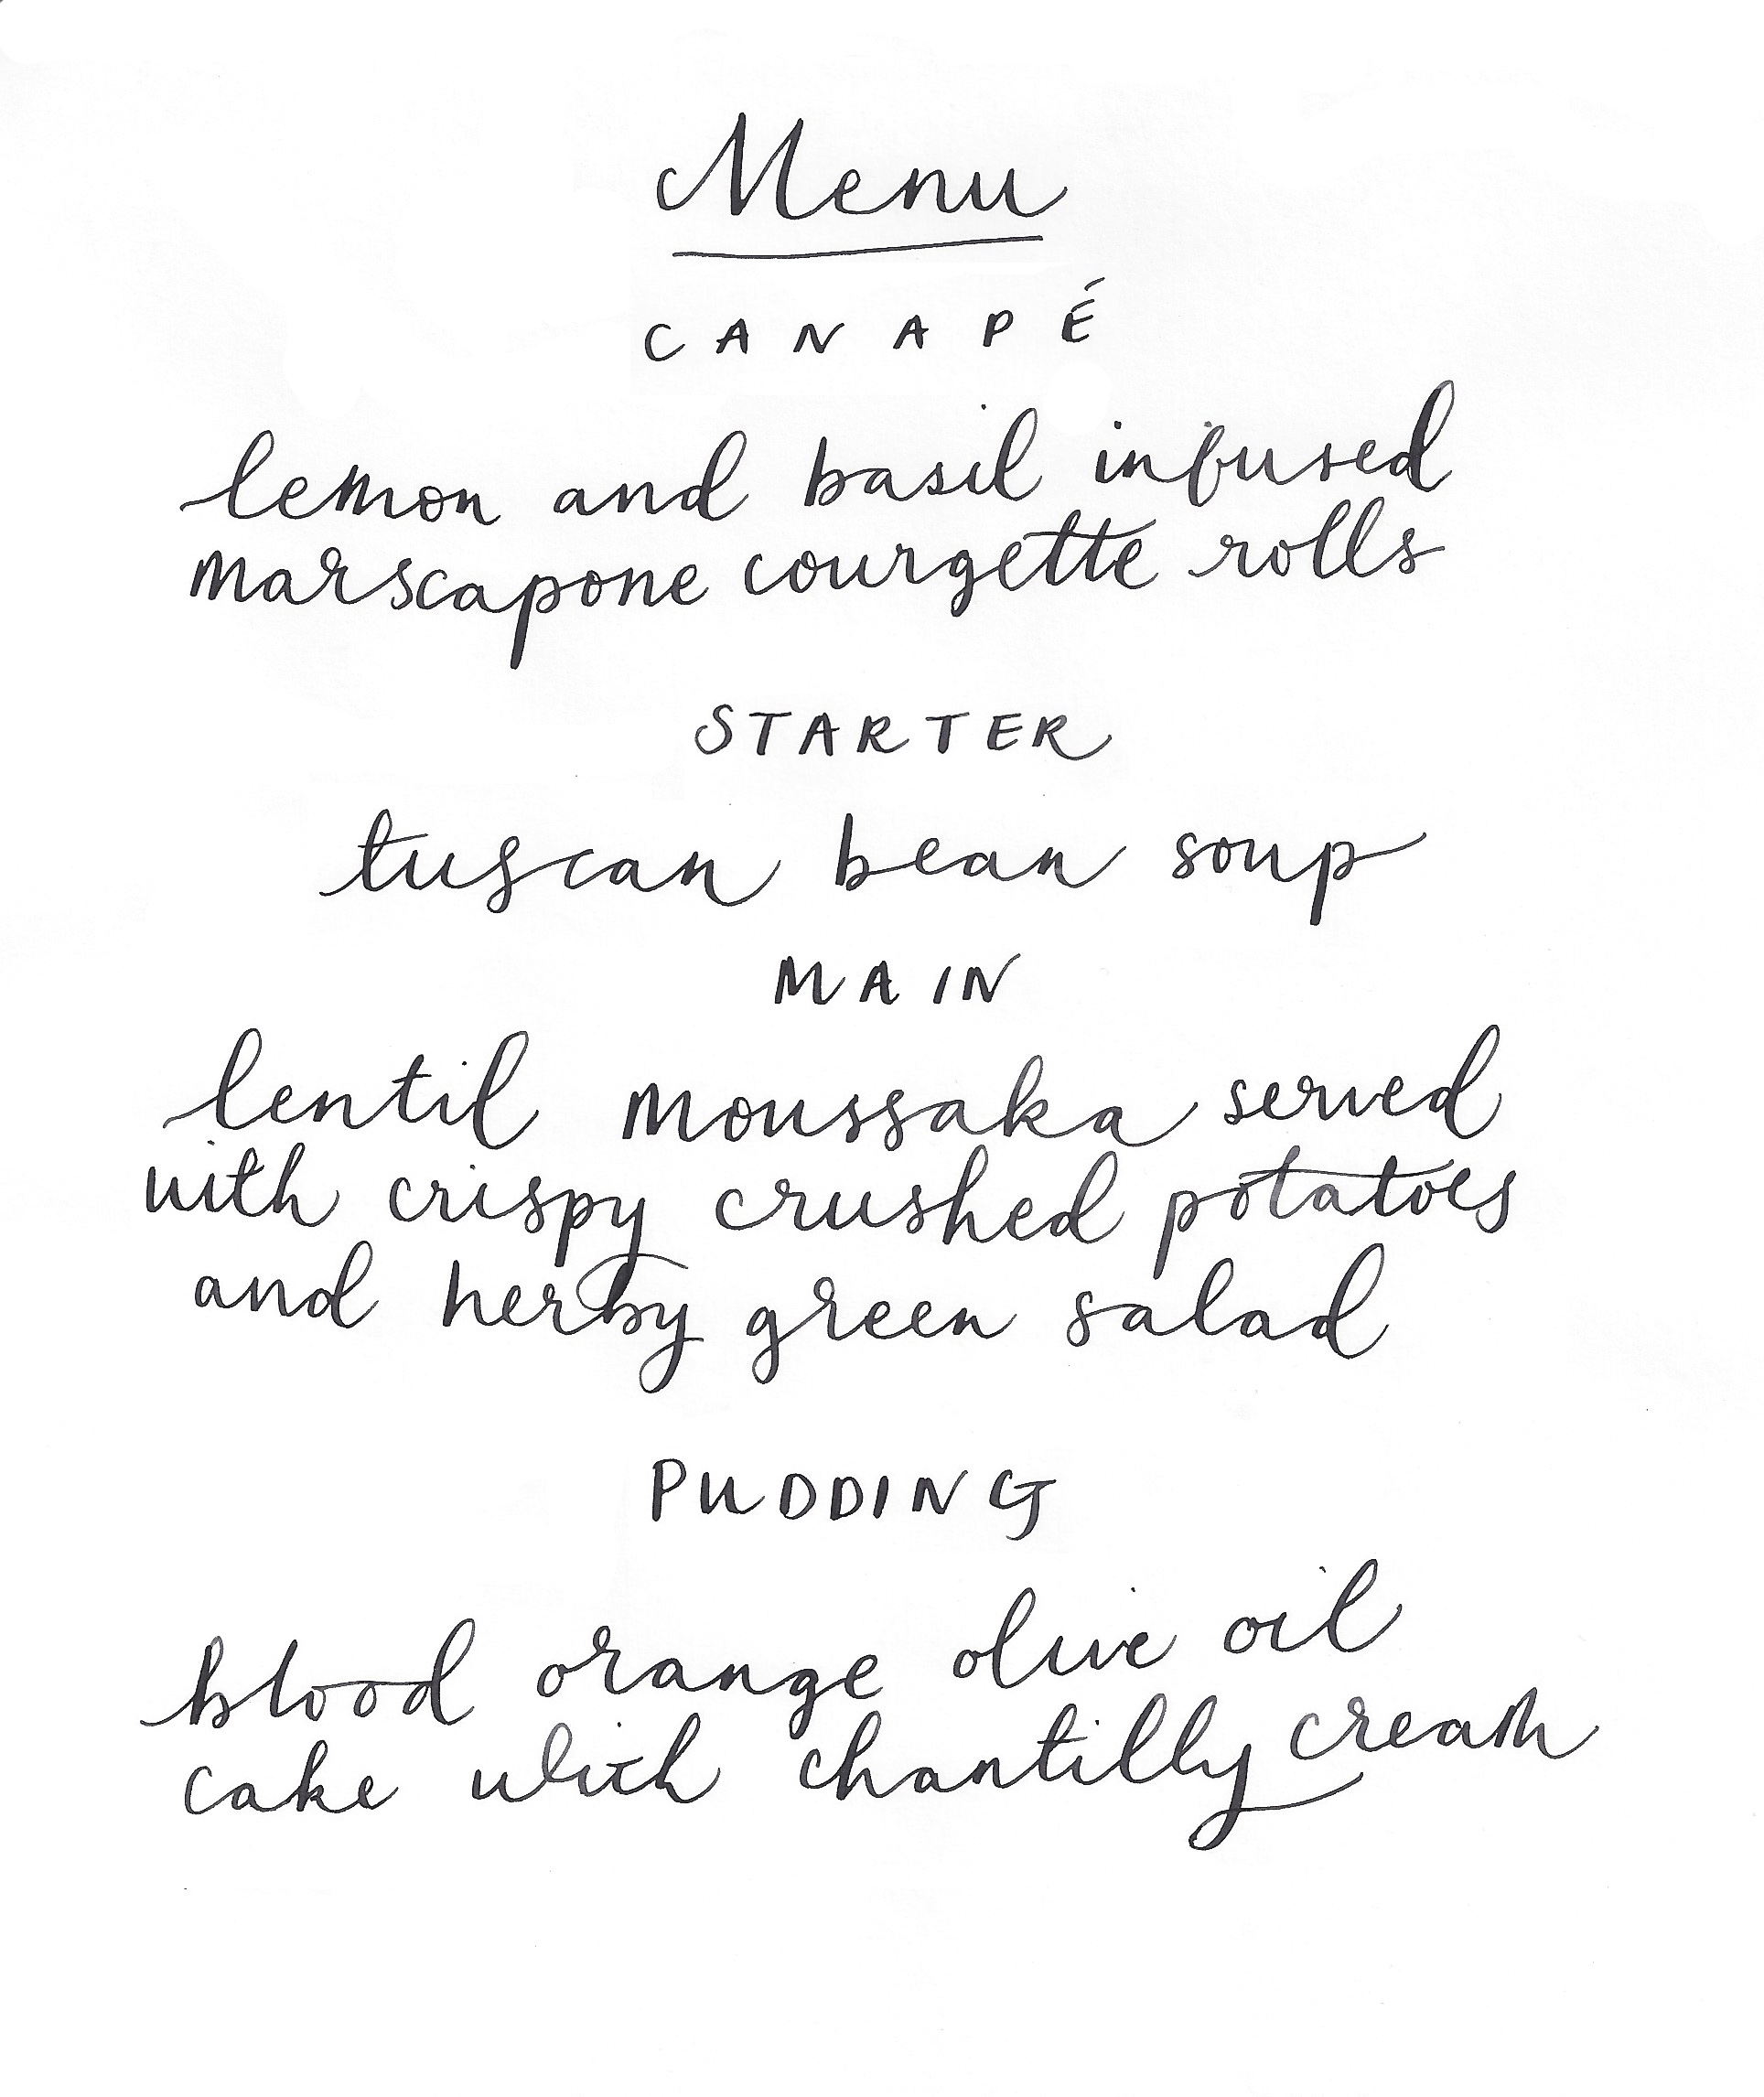 Menu
CANAPÉ
lemon and basil infused
marscapone courgette rolls
STARTER
tuscan bean soup
MAIN
lentil moussaka served
with crispy crushed potatoes
and herby green salad
PUDDING
blood orange olive oil
cake with chantilly cream